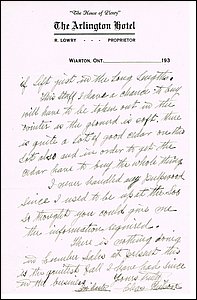 "The House of Plenty"
The Arlington Hotel
R. LOWRY - - PROPRIETOR
WIARTON, ONT. 193
if list just in the long lengths.
This stuff I have a chance to buy
will have to be taken out in the
winter is the ground is soft. There
is quite a lot of good cedar on this
lot also and in order to get the
cedar have to buy the whole thing
I never handled any pulpwood
since I used to be up at the Soo
so thought you could give me
the information required.
There is nothing doing
in lumber sales at present this
is the quietest fall I have had since
in the business.
Yours truly